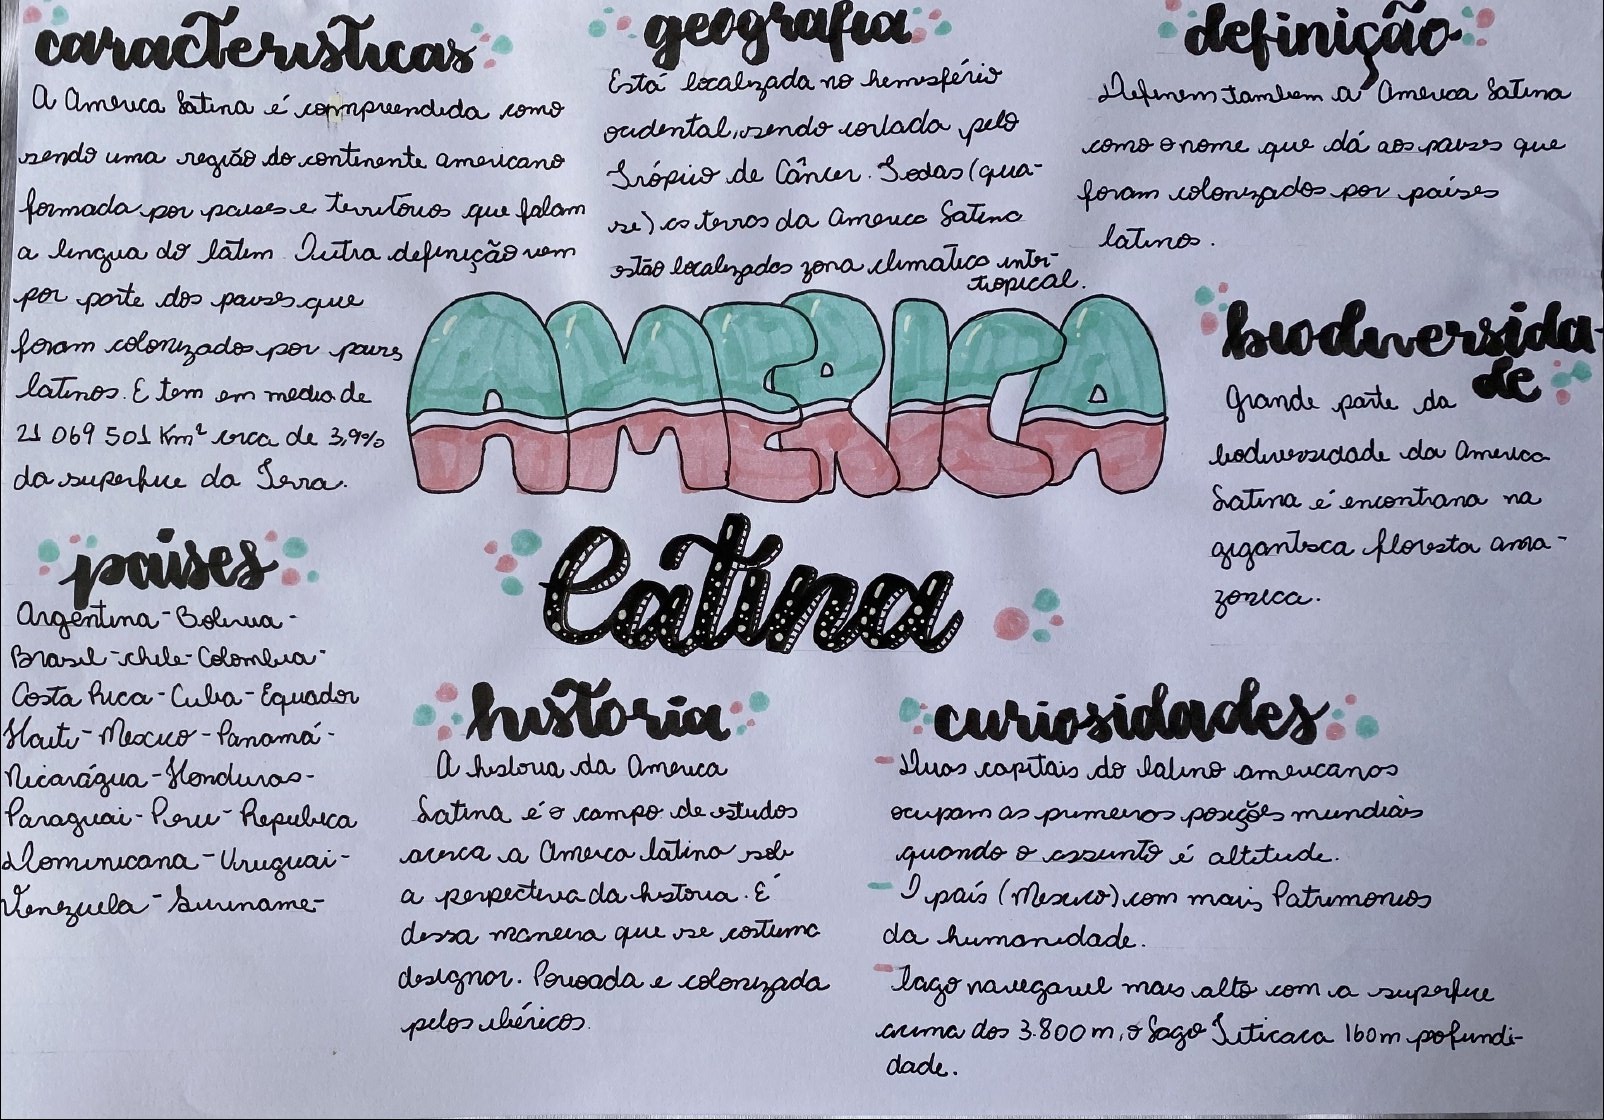 caracteristicas
A America Latina é compreendida como
sendo uma região do continente americano
formada por paises e territórios que falam
a lingua do latim. Outra definição vem
por parte dos paises que
foram colonizados por paises
latinos. E tem em media de
21 069 501 Km² cerca de 3,9%
da superfice da Terra.
geografia
Está localizada no hemisfério
ocidental, sendo cortada pelo
Trópico de Câncer. Todas (qua-
se) as terras da America Latina
estão localizadas zona climatica inter-
tropical.
definição
Definem tambem a America Latina
como o nome que dá aos paises que
foram colonizados por países
latinos.
AMERICA
latina
biodiversida-
de
Grande parte da
biodiversidade da America
Latina é encontrana na
gigantsca floresta ama-
zonica.
países
Argentina - Bolivia -
Brasil - chile - Colombia -
Costa Rica - Cuba - Equador
Haiti - Mexico - Panamá -
Nicarágua - Honduras -
Paraguai - Peru - Republica
Dominicana - Uruguai -
Venezuela - Suriname -
historia
A historia da America
Latina é o campo de estudos
acerca a America latina sob
a perspectiva da historia. É
dessa maneira que se costuma
designar. Povoada e colonizada
pelos ibéricos.
curiosidades
- Duas capitais do latino americanos
ocupam as primeiras posições mundiais
quando o assunto é altitude.
- O país (Mexico) com mais Patrimonios
da humanidade.
- lago navegavel mais alto com a superfice
acima dos 3.800 m, o Lago Titicaca 160m pofundi-
dade.